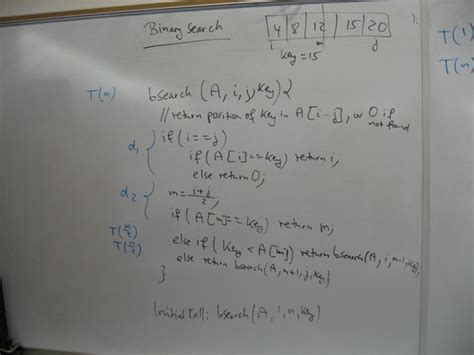 Binary search
4 8 12 15 20
i m j
key=15
T(1)
T(n)
T(n) bsearch (A, i, j, key){
//return position of key in A[i..j], or 0 if
not found
d1 if (i==j)
if (A[i]==key) return i;
else return 0;
d2 m=i+j/2;
if (A[m]==key) return m;
T(n/2) else if (key<A[m]) return bsearch(A, i, m-1, key);
T(n/2) else return bsearch(A, m+1, j, key);
}
Initial call: bsearch(A, 1, n, key)